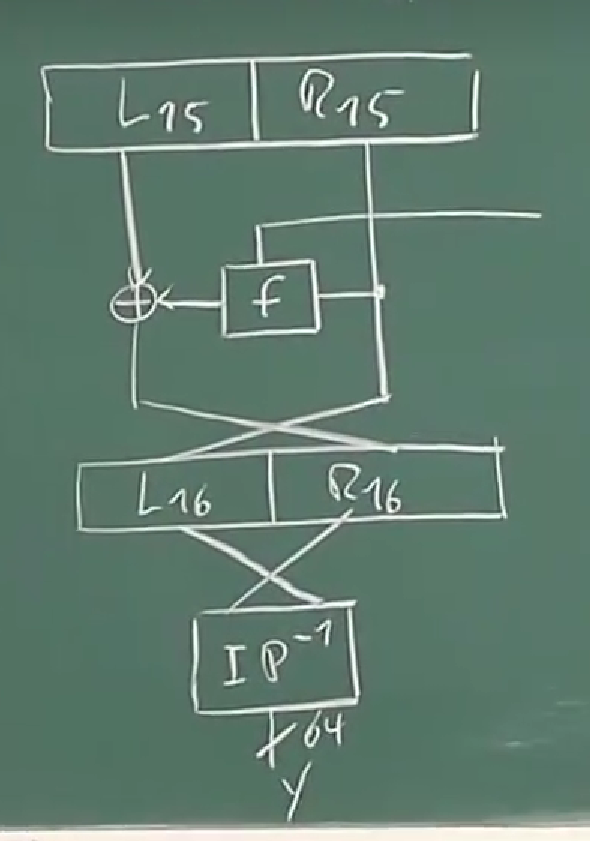 L15 R15
⊕ f
L16 R16
IP⁻¹
64
y